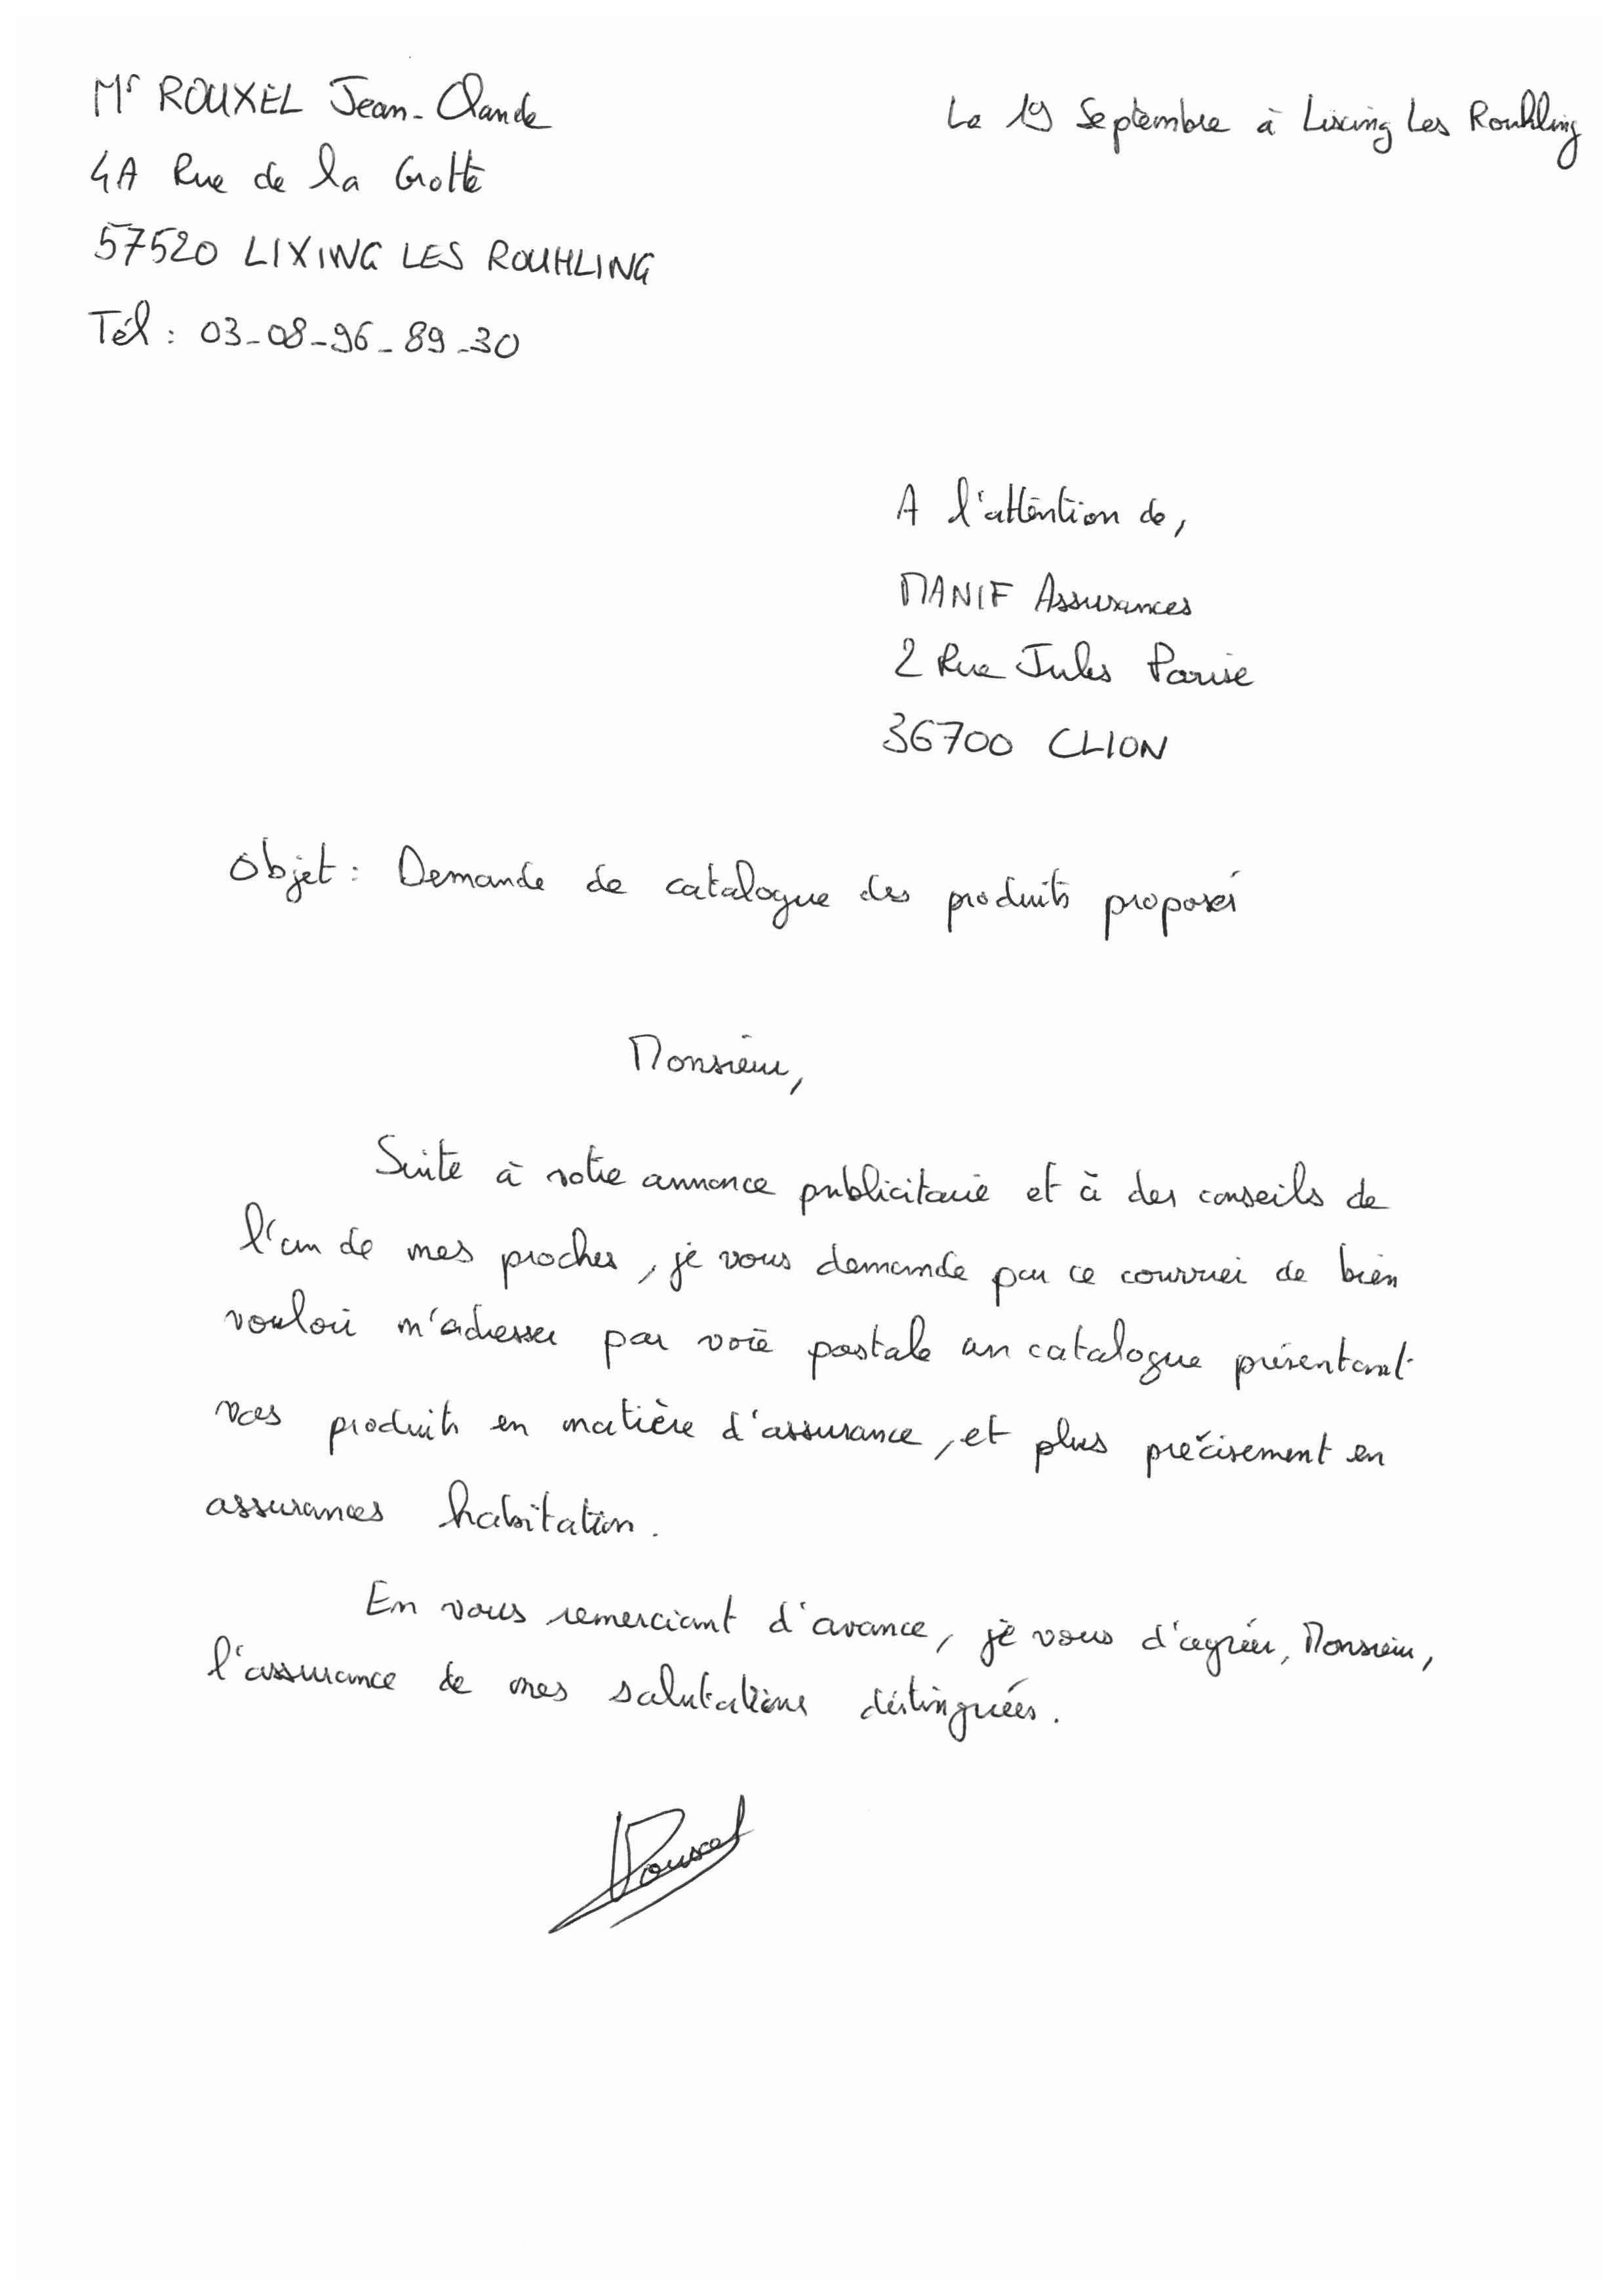 Mr ROUXEL Jean-Claude
Le 19 Septembre à Lixing Les Rouhling
4A Rue de la Grotte
57520 LIXING LES ROUHLING
Tél : 03-08-96-89-30
A l'attention de,
MANIF Assurances
2 Rue Jules Parise
36700 CLION
Objet : Demande de catalogue des produits proposés
Monsieur,
Suite à votre annonce publicitaire et à des conseils de
l'un de mes proches, je vous demande par ce courrier de bien
vouloir m'adresser par voie postale un catalogue présentant
vos produits en matière d'assurance, et plus précisement en
assurances habitation.
En vous remerciant d'avance, je vous d'agréer, Monsieur,
l'assurance de mes salutations distinguées.
Rouxel